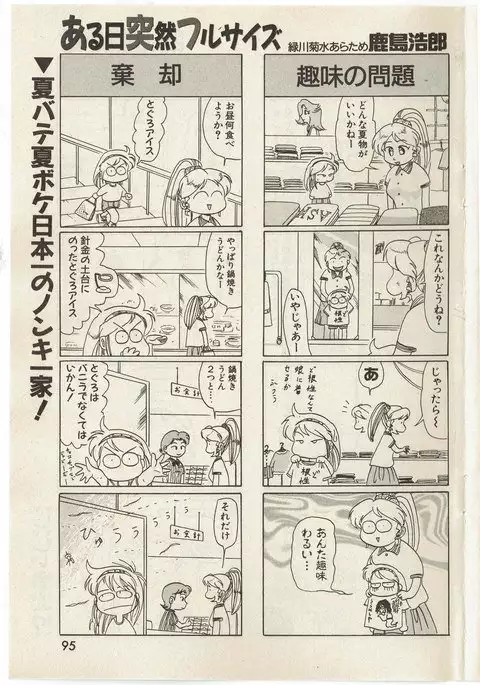 ある日突然フルサイズ
緑川菊水あらため鹿島浩郎
▼夏バテ夏ボケ日本一のノンキ一家！
趣味の問題
どんな夏物が
いいかねー
これなんかどうね？
根性
いやじゃあー
じゃったら〜
あ
ど根性なんて
娘に着
せるか
ふつう
根性
あんた趣味
わるい…
棄却
お昼何食べ
ようか？
とぐろアイス
やっぱり鍋焼き
うどんかな！
針金の土台に
のったとぐろアイス
鍋焼き
うどん
2つと…
お会計
とぐろは
バニラでなくては
いかん！
それだけ
お会計
ひゅうぅ
95